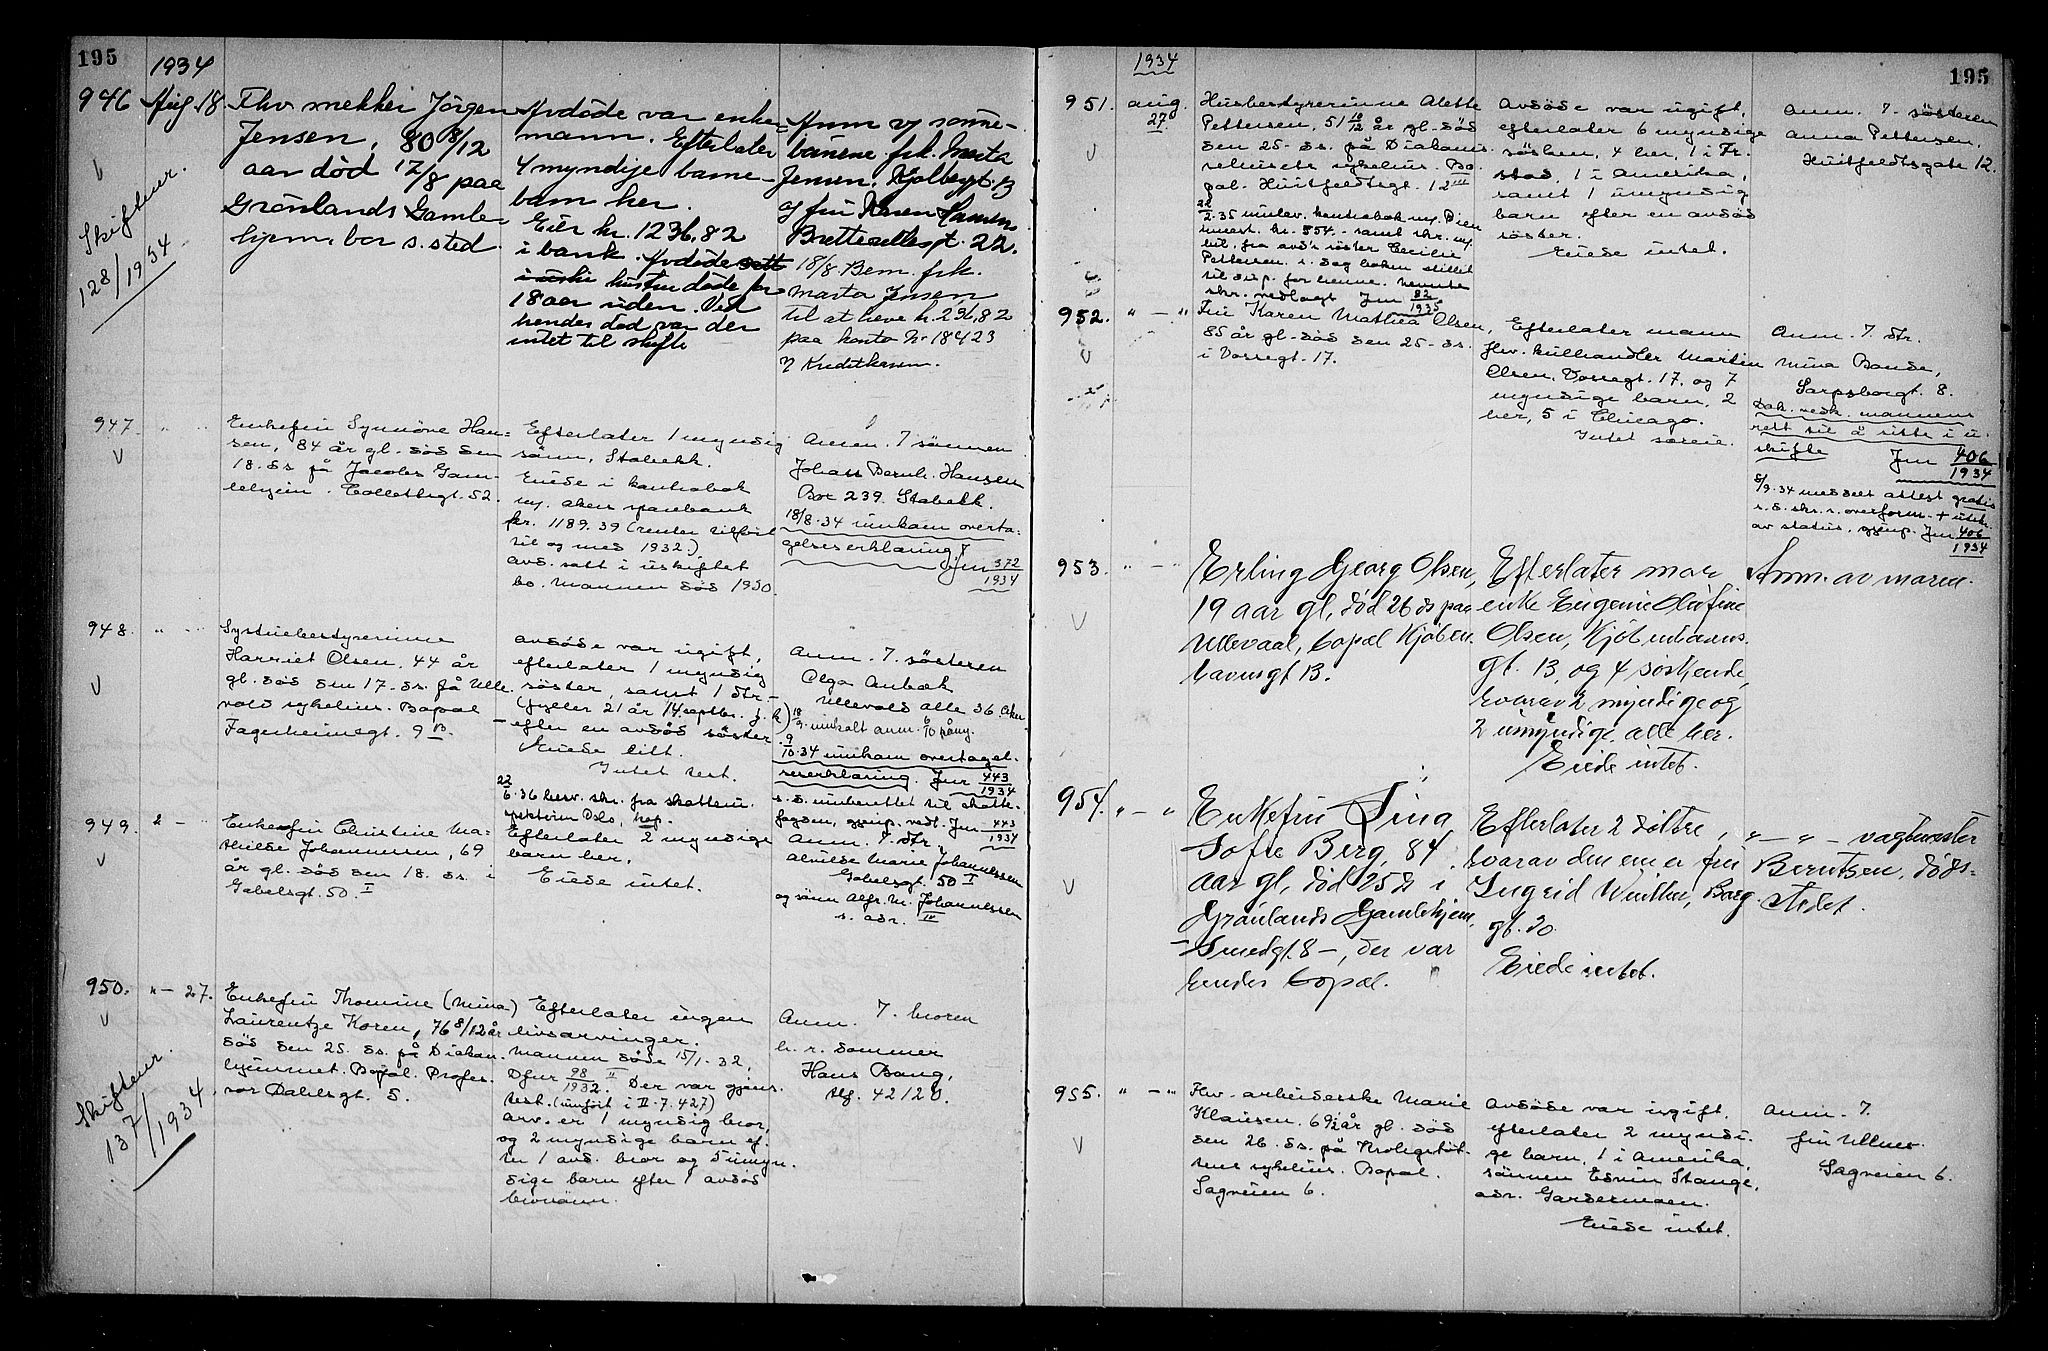 195
1934
946 Aug. 18.
Fhv. mekker Jörgen
Jensen, 80 8/12
aar död 17/8 paa
Grönlands Gamle-
hjem, bor s. sted.
Skifteur.
128/1934
Avdöde var enke-
mann. Efterlater
4 myndige barne-
barn her.
Eier kr. 1236,82
i bank. Avdöde satt
hustru döde for
18 aar siden. Ved
hendes död var der
intet til skifte
Anm v/ sönne-
barnene frk. Marta
Jensen,
og fru Karen Hansen
22.
18/8 Bem. frk.
Marta Jensen
til at heve kr. 236,82
paa konto No 18423
i Kreditkassen.
947.
Enkefru Synnöve Han-
sen, 84 år gl. död den
18. ds. på Jacobs Gam-
lehjem. Collettsgt. 52.
Efterlater 1 myndig
sönn, Stabekk.
Eiede i kontrabok
m/ Akers sparebank
kr. 1189.39 (renter tilfört
til og med 1932.)
avd. satt i uskiftet
bo. Mannen död 1930.
Anm. v. sönnen
Johan Bernh. Hansen
Box 239. Stabekk.
18/8.34 innkom overta-
gelseserklæring
Jnr 372/1934
948.
Systuebestyrerinne
Harriet Olsen, 44 år
gl. död den 17. ds. på Ulle-
vold sykehus. Bopæl
Fagerheimsgt. 9 B.
Avdöde var ugift,
efterlater 1 myndig
söster, samt 1 dtr.
(fyller 21 år 14 septbr. d. å.)
efter en avdöd söster
Eiede litt.
Intet test.
22/6.36 besv. skr. fra skattein-
spektören Oslo,
Anm. v. sösteren
Olga Aubæk
Ullevolds alle 36. Aker
18/9. innkalt anm. 6/10 på ny.
9/10.34 innkom overtagel-
seserklæring. Jnr 443/1934
s. d. innberettet til skatte-
fogden, gjenp. vedl. Jnr 443/1934
949. 2 —
Enkefru Christine Ma-
thilde Johannessen, 69
år gl. död den 18. ds. i
Gabelsgt. 50 I
Efterlater 2 myndige
barn her.
Eiede intet.
Anm. v. dtr.
Alvilde Marie Johannessen
Gabelsgt. 50 I
og sönn Alfr. M. Johannessen
s. adr. IV
950. " — 27.
Enkefru Thomine (Mina)
Laurentze Koren, 76 8/12 år
död den 25. ds. på Diakon-
hjemmet. Bopæl. Profes-
sor Dahlsgt. 5.
Skifteur.
137/1934
Efterlater ingen
livsarvinger.
Mannen döde 15/1.32,
Dfnr 98/1932 II. Der var gjens.
test. (innfört i II.7.427)
arv. er 1 myndig bror,
og 2 myndige barn ef-
ter 1 avd. bror og 5 umyn-
dige barn efter 1 avdöd
Anm. v. broren
h. r. dommer
Hans Bang,
tlf. 42120.
195
1934
951. aug. 27.
Husbestyrerinne Alette
Pettersen, 51 10/12 år gl. död
den 25. ds. på Diakonis-
sehusets sykehus. Bo-
pæl. Huitfeldtsgt. 12 III
22/2.35 innlev. kontrabok m/ Dien
innest. kr. 554.- samt skr. m/
bil. fra avd's söster Cecilie
Pettersen. s. dag boken stillet
til disp. for henne. Nevnte
skr. vedlagt Jnr 82/1935
Avdöde var ugift,
efterlater 6 myndige
sösken, 4 her, 1 i Fr.
stad, 1 i Amerika,
samt 1 umyndig
barn efter en avdöd
söster.
Eiede intet.
Anm. v. sösteren
Anna Pettersen,
Huitfeldtsgate 12.
952. " — "
Fru Karen Mathea Olsen,
85 år gl. död den 25. ds.
i Vossegt. 17.
Efterlater mann
fhv. kullhandler Martin
Olsen, Vossegt. 17, og 7
myndige barn, 2
her, 5 i Chicago.
Intet særeie.
Anm. v. dtr.
Mina Bonde,
Sarpsborggt. 8.
Dok. vedk. mannens
rett til å sitte i u-
skifte Jnr 406/1934
8/9.34 meddelt attest gratis
s. d. skr. t. overform. + utskr.
av status, gjenp. Jnr 406/1934
953. " — "
Erling Georg Olsen,
19 aar gl., död 26 ds paa
Ullevaal, bopæl Kjöben-
havnsgt 13.
Efterlater mor
enke Eugenie Olufine
Olsen, Kjöbenhavns-
gt. 13, og 4 söskende,
hvorav 2 myndige og
2 umyndige, alle her.
Eiede intet.
Anm. av moren.
954. " — "
Enkefru Lina
Sofie Berg, 84
aar gl., död 25 ds i
Grönlands Gamlehjem,
— Smedgt. 8 —, der var
hendes bopæl.
Efterlater 2 döttre,
hvorav den ene er fru
Ingrid Winther, Borg-
gt. 20.
Eiede intet.
" — " — vagtmester
Berntsen, döds-
stedet.
955. " — "
Fhv. arbeiderske Marie
Klausen, 69 1/2 år gl. död
den 26. ds. på Krohgstöt-
tens sykehus. Bopæl.
Sagveien 6.
Avdöde var ugift,
efterlater 2 myndi-
ge barn, 1 i Amerika,
sönnen Edvin Stange,
adr. Gardermoen.
Eiede intet.
Anm. v.
fru Ullnes
Sagveien 6.